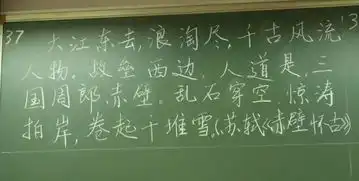 37 大江东去，浪淘尽，千古风流
人物，故垒西边，人道是，三
国周郎赤壁。乱石穿空，惊涛
拍岸，卷起千堆雪。(苏轼《赤壁怀古》)